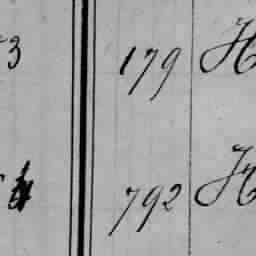 3 179 H
4 792 H